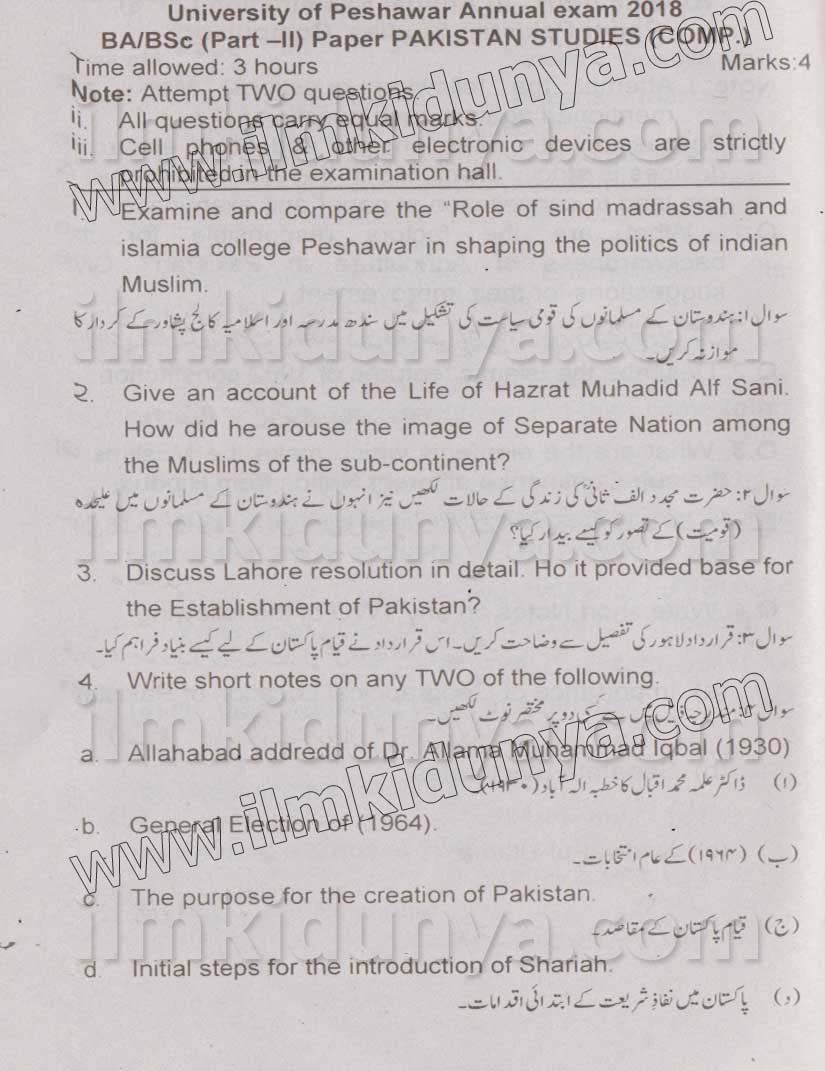 University of Peshawar Annual exam 2018
BA/BSc (Part –II) Paper PAKISTAN STUDIES (COMP.)
Time allowed: 3 hours Marks:4
Note: Attempt TWO questions.
ii. All questions carry equal marks.
iii. Cell phones & other electronic devices are strictly
prohibited in the examination hall.
1. Examine and compare the “Role of sind madrassah and
islamia college Peshawar in shaping the politics of indian
Muslim.
سوال ۱: ہندوستان کے مسلمانوں کی قومی سیاست کی تشکیل میں سندھ مدرسہ اور اسلامیہ کالج پشاور کے کردار کا
موازنہ کریں۔
2. Give an account of the Life of Hazrat Muhadid Alf Sani.
How did he arouse the image of Separate Nation among
the Muslims of the sub-continent?
سوال ۲: حضرت مجدد الف ثانیؒ کی زندگی کے حالات لکھیں نیز انہوں نے ہندوستان کے مسلمانوں میں علیحدہ
(قومیت) کے تصور کو کیسے بیدار کیا؟
3. Discuss Lahore resolution in detail. Ho it provided base for
the Establishment of Pakistan?
سوال ۳: قرارداد لاہور کی تفصیل سے وضاحت کریں۔ اس قرارداد نے قیام پاکستان کے لیے کیسے بنیاد فراہم کیا۔
4. Write short notes on any TWO of the following.
سوال ۴: مندرجہ ذیل میں سے کسی دو پر مختصر نوٹ لکھیں۔
a. Allahabad addredd of Dr. Allama Muhammad Iqbal (1930)
(ا) ڈاکٹر علمہ محمد اقبال کا خطبہ الہ آباد (۱۹۳۰)
b. General Election of (1964).
(ب) (۱۹۶۴) کے عام انتخابات۔
c. The purpose for the creation of Pakistan.
(ج) قیام پاکستان کے مقاصد۔
d. Initial steps for the introduction of Shariah.
(د) پاکستان میں نفاذِ شریعت کے ابتدائی اقدامات۔
www.ilmkidunya.com
www.ilmkidunya.com
ilmkidunya.com
ilmkidunya.com
ilmkidunya.com
ilmkidunya.com
ilmkidunya.com